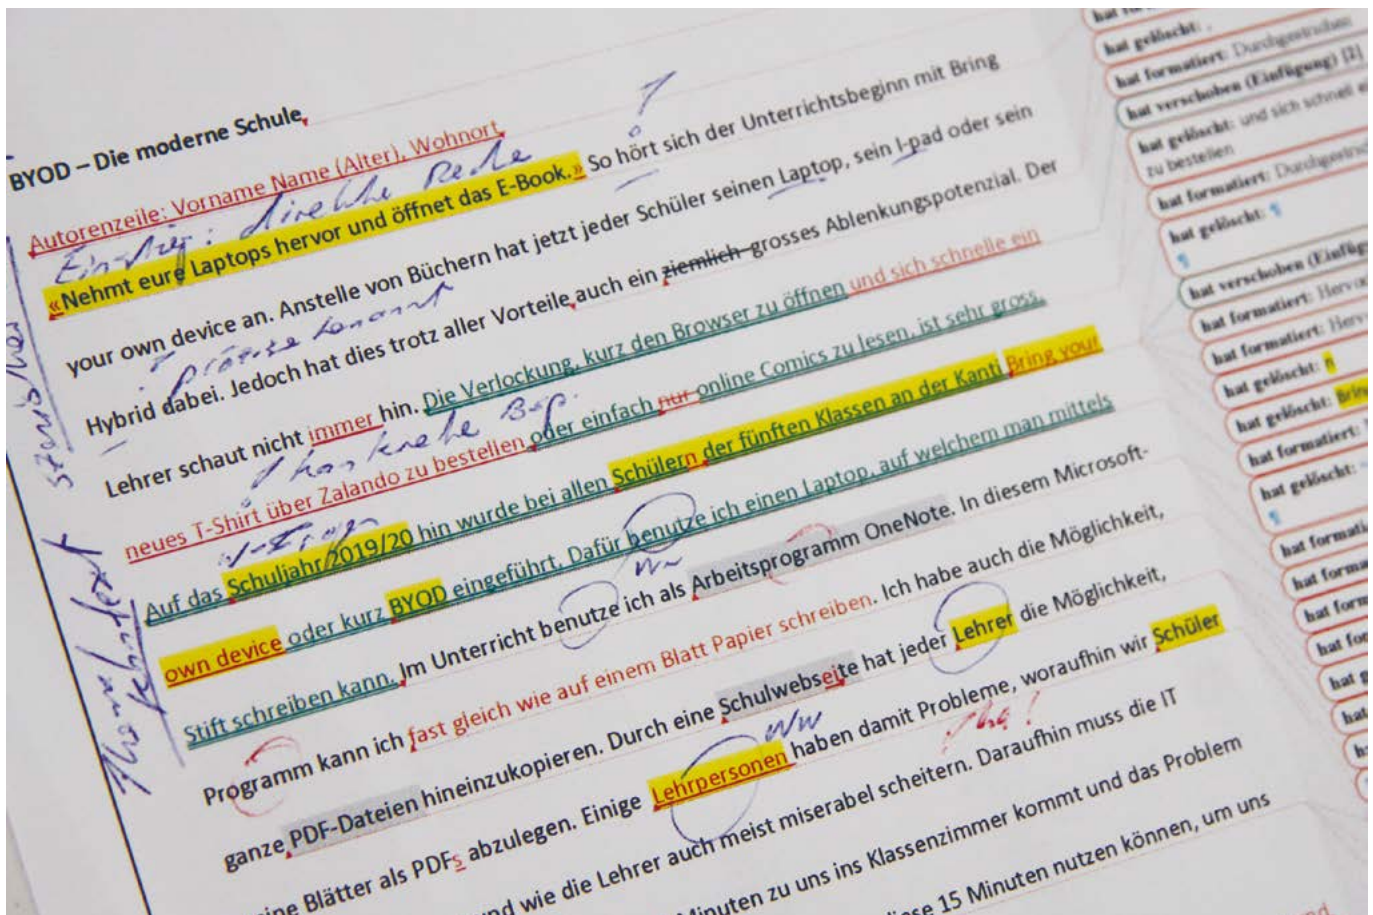 BYOD – Die moderne Schule
Autorenzeile: Vorname Name (Alter), Wohnort
Einstieg: direkte Rede
«Nehmt eure Laptops hervor und öffnet das E-Book.» So hört sich der Unterrichtsbeginn mit Bring
your own device an. Anstelle von Büchern hat jetzt jeder Schüler seinen Laptop, sein I-pad oder sein
präzise benannt
Hybrid dabei. Jedoch hat dies trotz aller Vorteile auch ein ziemlich grosses Ablenkungspotenzial. Der
Lehrer schaut nicht immer hin. Die Verlockung, kurz den Browser zu öffnen und sich schnelle ein
! konkrete Bsp.
neues T-Shirt über Zalando zu bestellen oder einfach nur online Comics zu lesen, ist sehr gross.
W-Fragen
Auf das Schuljahr 2019/20 hin wurde bei allen Schülern der fünften Klassen an der Kanti Bring your
own device oder kurz BYOD eingeführt. Dafür benutze ich einen Laptop, auf welchem man mittels
Ww
Stift schreiben kann. Im Unterricht benutze ich als Arbeitsprogramm OneNote. In diesem Microsoft-
Programm kann ich fast gleich wie auf einem Blatt Papier schreiben. Ich habe auch die Möglichkeit,
ganze PDF-Dateien hineinzukopieren. Durch eine Schulwebseite hat jeder Lehrer die Möglichkeit,
Ww
Blätter als PDFs abzulegen. Einige Lehrpersonen haben damit Probleme, woraufhin wir Schüler
und wie die Lehrer auch meist miserabel scheitern. Daraufhin muss die IT
Minuten zu uns ins Klassenzimmer kommt und das Problem
diese 15 Minuten nutzen können, um uns
szenischer
hat gelöscht: ,
hat formatiert: Durchgestrichen
hat verschoben (Einfügung) [2]
hat gelöscht: und sich schnell
zu bestellen
hat formatiert:
hat gelöscht: ¶
¶
hat verschoben
hat formatiert:
hat formatiert:
hat gelöscht: n
hat gelöscht:
hat formatiert:
hat gelöscht:
¶
hat
hat
hat
hat
hat
hat